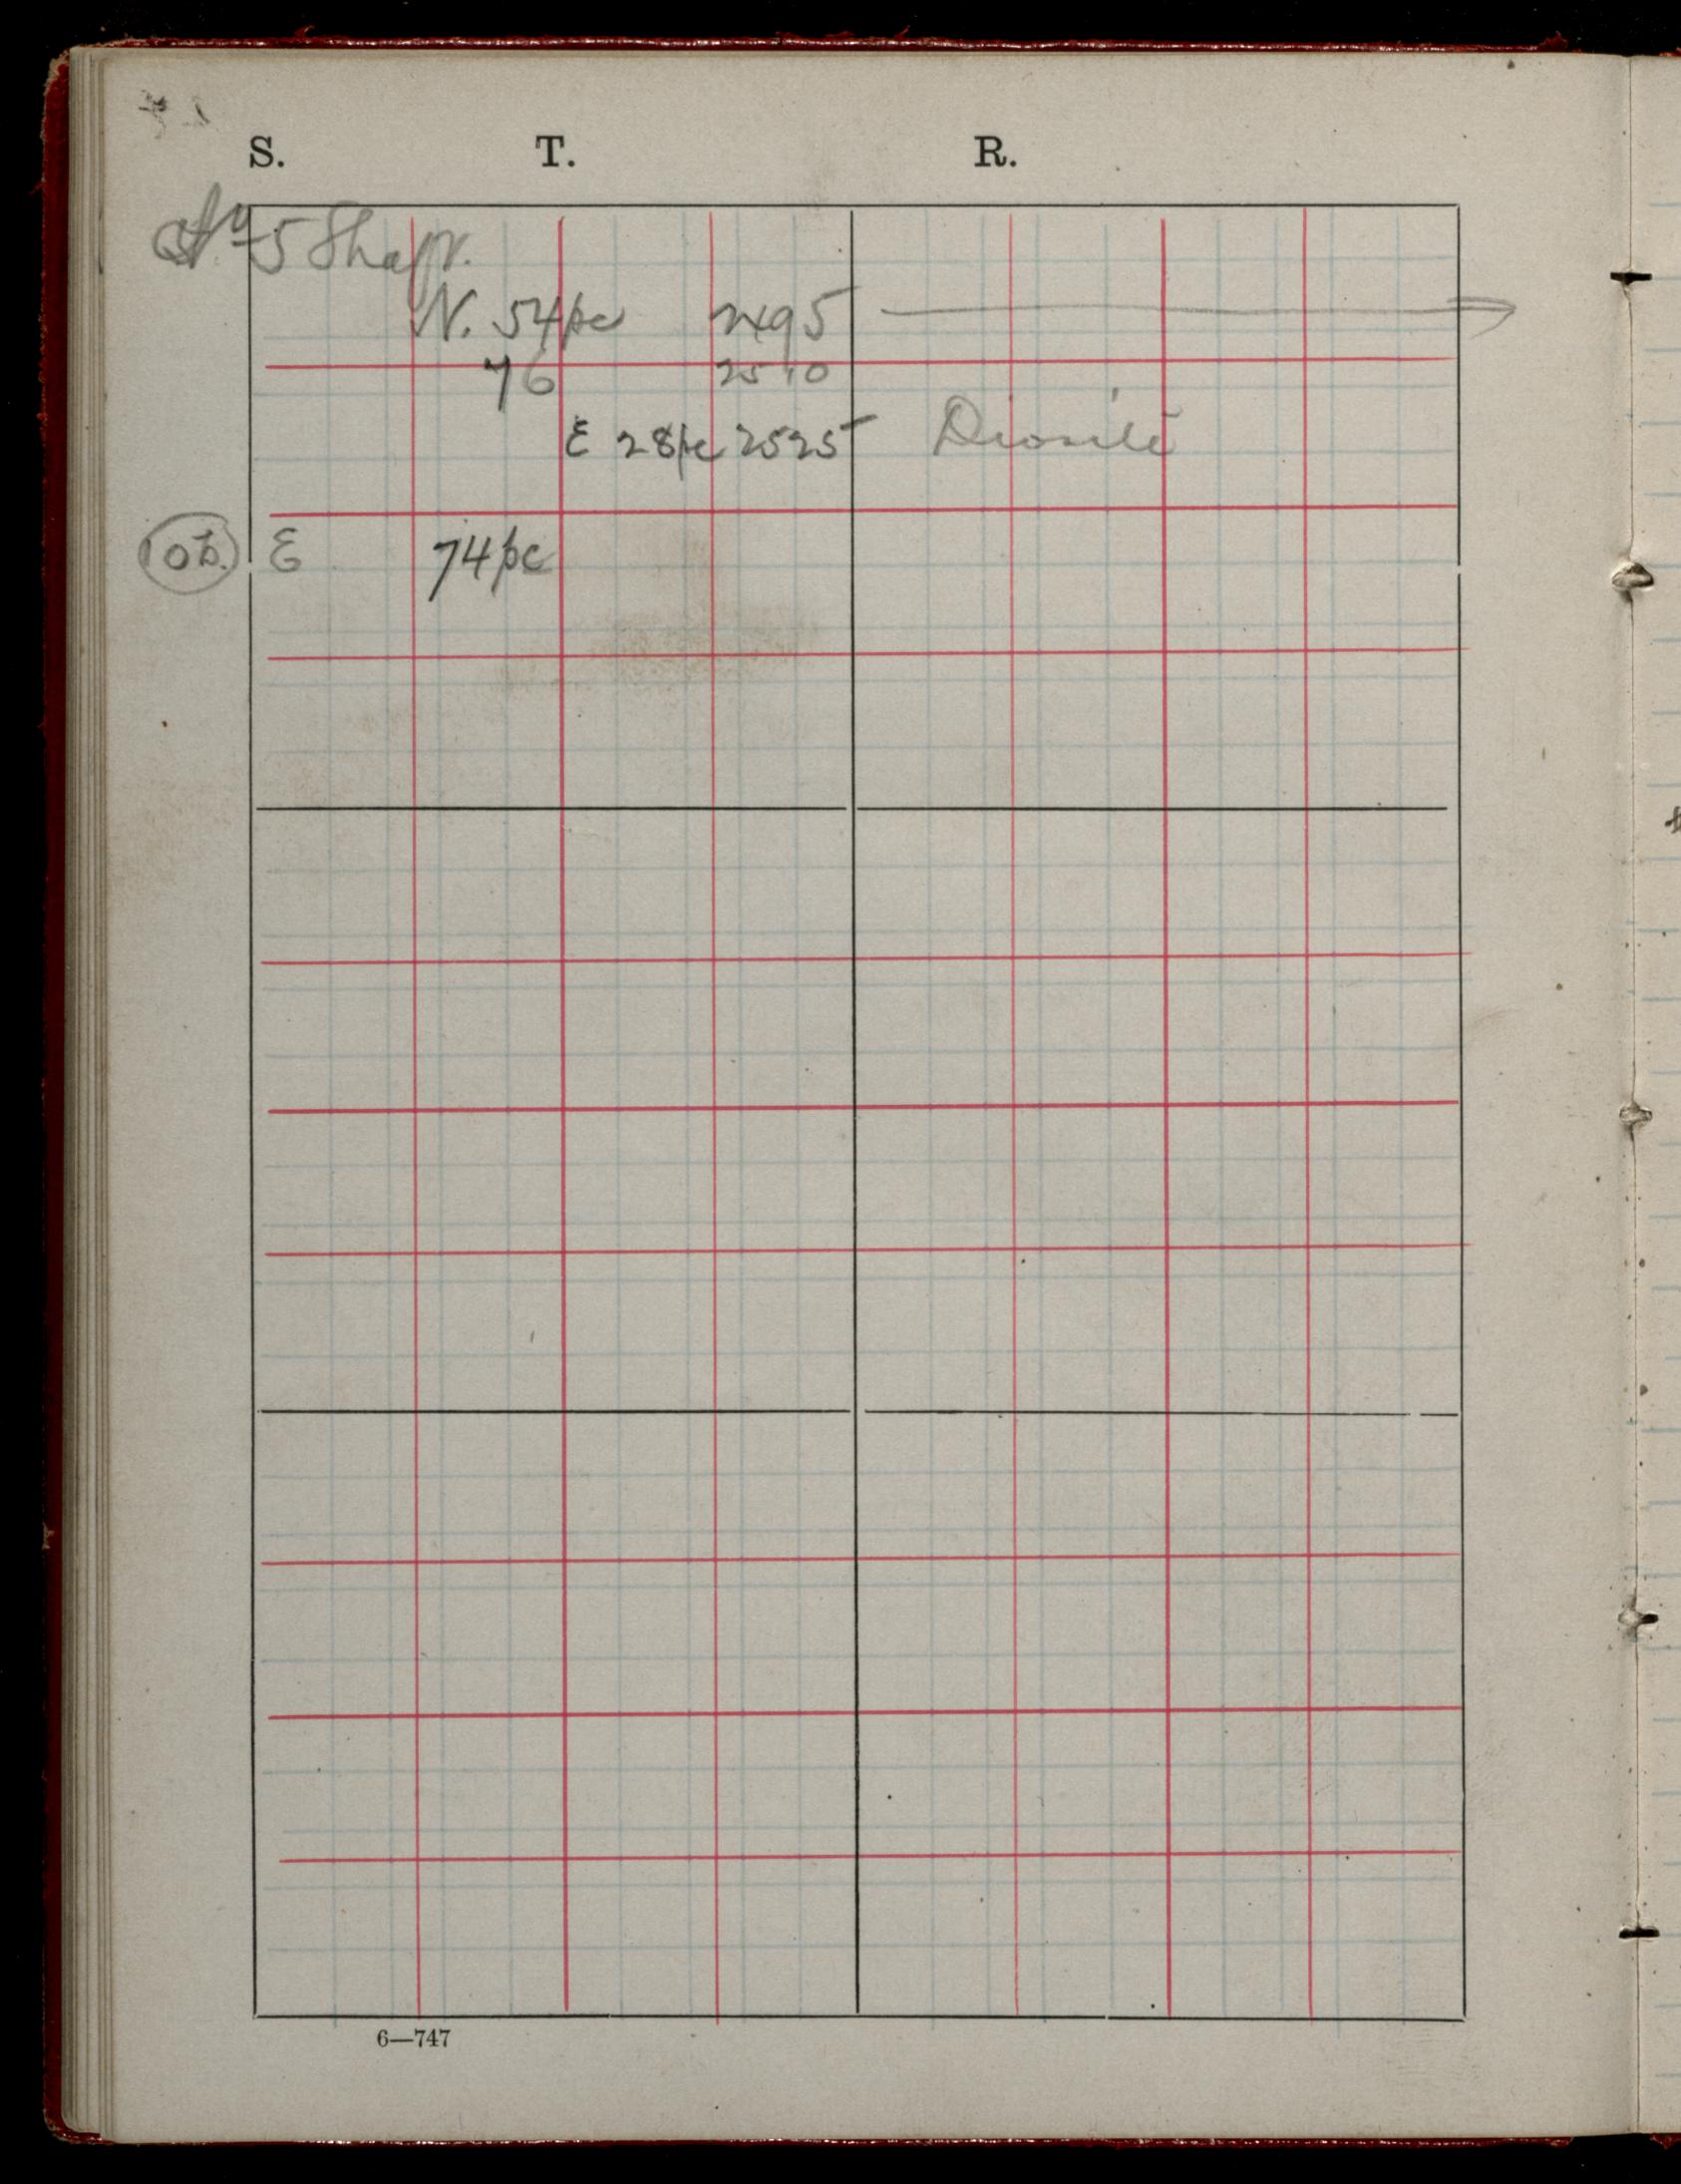 S. T. R.
No 5 Shaft.
N. 54pc 2495
76 2510
E 28pc 2525 Diorite
E 74pc
6—747